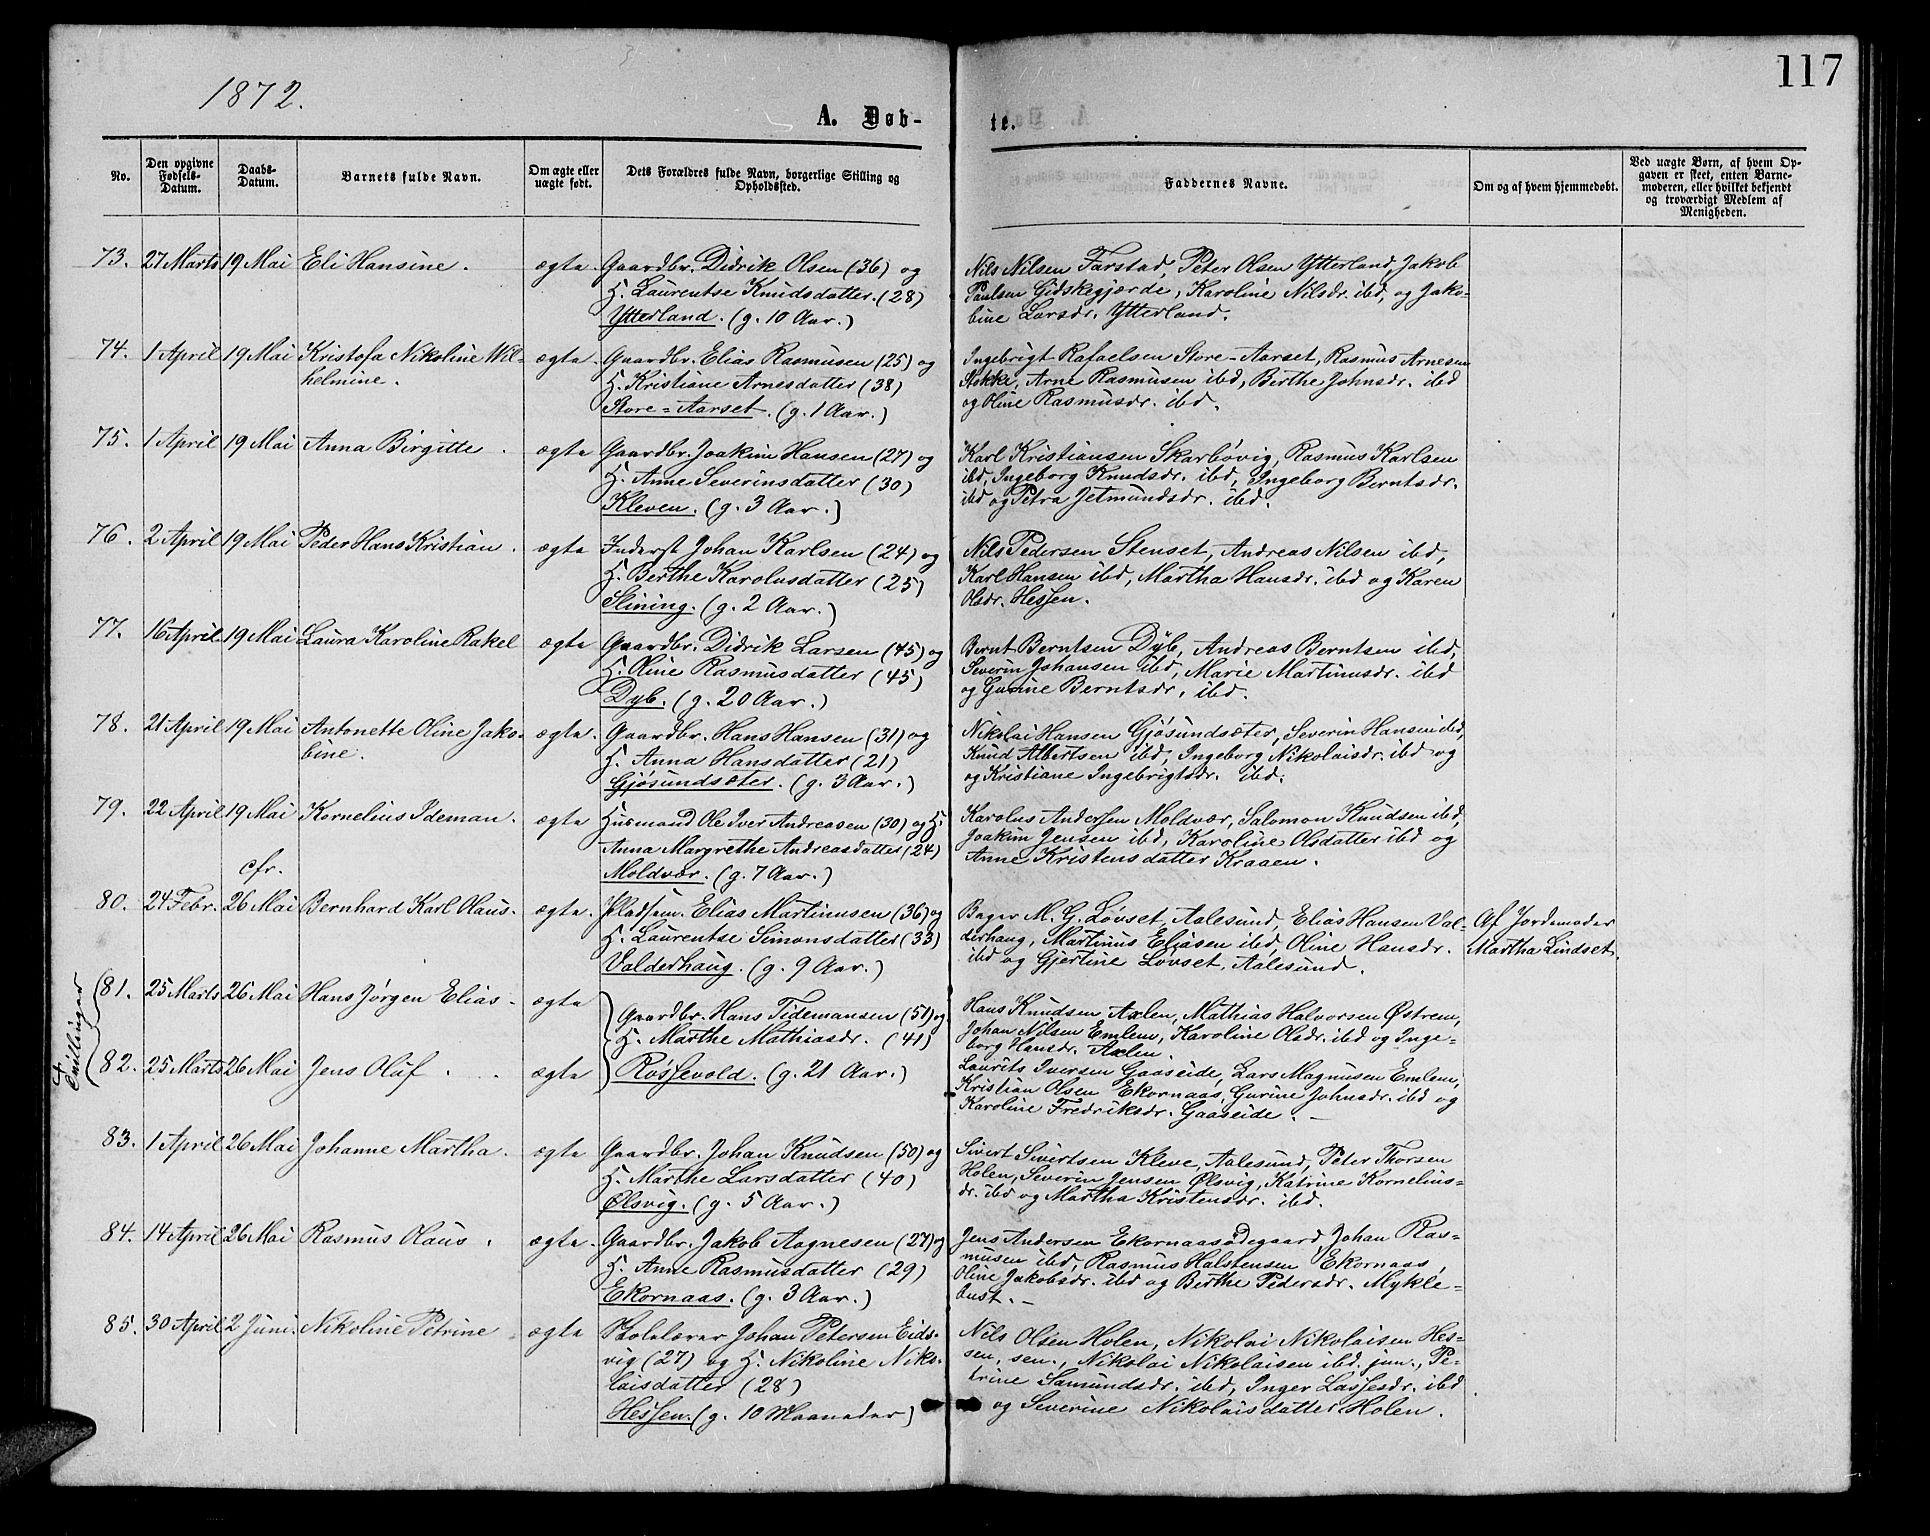 117
1872.
A. Døb-
te.
No.
Den opgivne Fødsels-Datum.
Daabs-Datum.
Barnets fulde Navn.
Om ægte eller uægte født.
Dets Forældres fulde Navn, borgerlige Stilling og Opholdssted.
Faddernes Navne.
Om og af hvem hjemmedøbt.
Ved uægte Børn, af hvem Opgaven er skeet, enten Barnemoderen, eller hvilket bekjendt og troværdigt Medlem af Menigheden.
73. 27 Marts 19 Mai Eli Hansine. ægte. Gaardbr. Didrik Olsen (36) og
H. Laurentse Knudsdatter. (28)
Ytterland. (g. 10 Aar.)
Nils Nilsen Farstad, Peter Olsen Ytterland, Jakob
Paulsen Gidskegjærde, Karoline Nilsdr. ibd, og Jako-
bine Larsdr. Ytterland.
74. 1 April 19 Mai Kristofa Nikoline Wil- ægte Gaardbr. Elias Rasmusen (25) og
helmine. H. Kristiane Arnesdatter (38)
Store-Aarset. (g. 1 Aar.)
Ingebrigt Rafaelsen Store-Aarset, Rasmus Arnesen
Stokke, Arne Rasmusen ibd, Berthe Johnsdr. ibd
og Oline Rasmusdr. ibd.
75. 1 April 19 Mai Anna Birgitte. ægte Gaardbr. Joakim Hansen (27) og
H. Anne Severinsdatter (30)
Kleven. (g. 3 Aar.)
Karl Kristiansen Skarbøvig, Rasmus Karlsen
ibd, Ingeborg Knudsdr. ibd, Ingeborg Berntsdr.
ibd og Petra Jetmundsdr. ibd.
76. 2 April 19 Mai Peder Hans Kristian. ægte Inderst Johan Karlsen (24) og
H. Berthe Karolusdatter (25)
Slining. (g. 2 Aar.)
Nils Pedersen Stenset, Andreas Nilsen ibd,
Karl Hansen ibd, Martha Hansdr. ibd og Karen
Olsdr. Hessen.
77. 16 April 19 Mai Laura Karoline Rakel ægte Gaardbr. Didrik Larsen (45) og
H. Oline Rasmusdatter (45)
Dyb. (g. 20 Aar.)
Bernt Berntsen Dyb, Andreas Berntsen ibd,
Severin Johansen ibd, Marie Martinusdr. ibd
og Gurine Berntsdr. ibd.
78. 21 April 19 Mai Antonette Oline Jako- ægte. Gaardbr. Hans Hansen (31) og
bine. H. Anna Hansdatter (21)
Gjøsundsæter. (g. 3 Aar.)
Nikolai Hansen Gjøsundsæter, Severin Hansen ibd,
Knud Albertsen ibd, Ingeborg Nikolaisdr. ibd og
og Kristiane Ingebrigtsdr. ibd.
79. 22 April 19 Mai Kornelius Ideman. ægte Husmand Ole Iver Andreasen (30) og H.
Anna Margrethe Andreasdatter (24)
Moldvær. (g. 7 Aar.)
Karolus Andersen Moldvær, Salomon Knudsen ibd,
Joakim Jensen ibd, Karoline Olsdatter ibd og
Anne Kristensdatter Kraaen.
cfr.
80. 24 Febr. 26 Mai Bernhard Karl Olaus. ægte. Pladsem. Elias Martinusen (36) og
H. Laurentse Simonsdatter (33)
Valderhaug. (g. 9 Aar.)
Bager M. G. Løvset, Aalesund, Elias Hansen Val-
derhaug, Martinus Eliasen ibd, Oline Hansdr.
ibd og Gjertine Løvset, Aalesund.
Af Jordemoder
Martha Lindset.
Tvillinger
81. 25 Marts 26 Mai Hans Jørgen Elias. ægte Gaardbr. Hans Tidemansen (51) og
H. Marthe Mathiasdr. (41)
Hans Knudsen Axlen, Mathias Halvorsen Østrem,
Johan Nilsen Emlem, Karoline Olsdr. ibd og Inge-
borg Hansdr. Axlen.
82. 25 Marts 26 Mai Jens Olof. ægte Røssevold. (g. 21 Aar.)
Laurits Iversen Gaaseide, Lars Magnusen Emlem,
Kristian Olsen Ekornaas, Gurine Johnsdr. ibd og
Karoline Fredriksdr. Gaaseide.
83. 1 April 26 Mai Johanne Martha. ægte Gaardbr. Johan Knudsen (50) og
H. Marthe Larsdatter (40)
Ølsvig. (g. 5 Aar.)
Sivert Sivertsen Kleve, Aalesund, Peter Thorsen
Holen, Severin Jensen Ølsvig, Katrine Kornelius-
dr. ibd og Martha Kristensdr. ibd.
84. 14 April 26 Mai Rasmus Olaus. ægte. Gaardbr. Jakob Aagnesen (27) og
H. Anne Rasmusdatter (29)
Ekornaas. (g. 3 Aar.)
Jens Andersen Ekornaasødegaard, Johan Ras-
musen ibd, Rasmus Halstensen Ekornaas,
Oline Jakobsdr. ibd og Berthe Pedersdr. Mykle-
bust.
85. 30 April 2 Juni. Nikoline Petrine ægte Skolelærer Johan Petersen Eids-
vig (27) og H. Nikoline Niko-
laisdatter (28)
Hessen. (g. 10 Maaneder)
Nils Olsen Holen, Nikolai Nikolaisen Hes-
sen, sen., Nikolai Nikolaisen ibd. jun., Pe-
trine Samundsdr. ibd, Inger Lassesdr. ibd
og Severine Nikolaisdatter Holen.